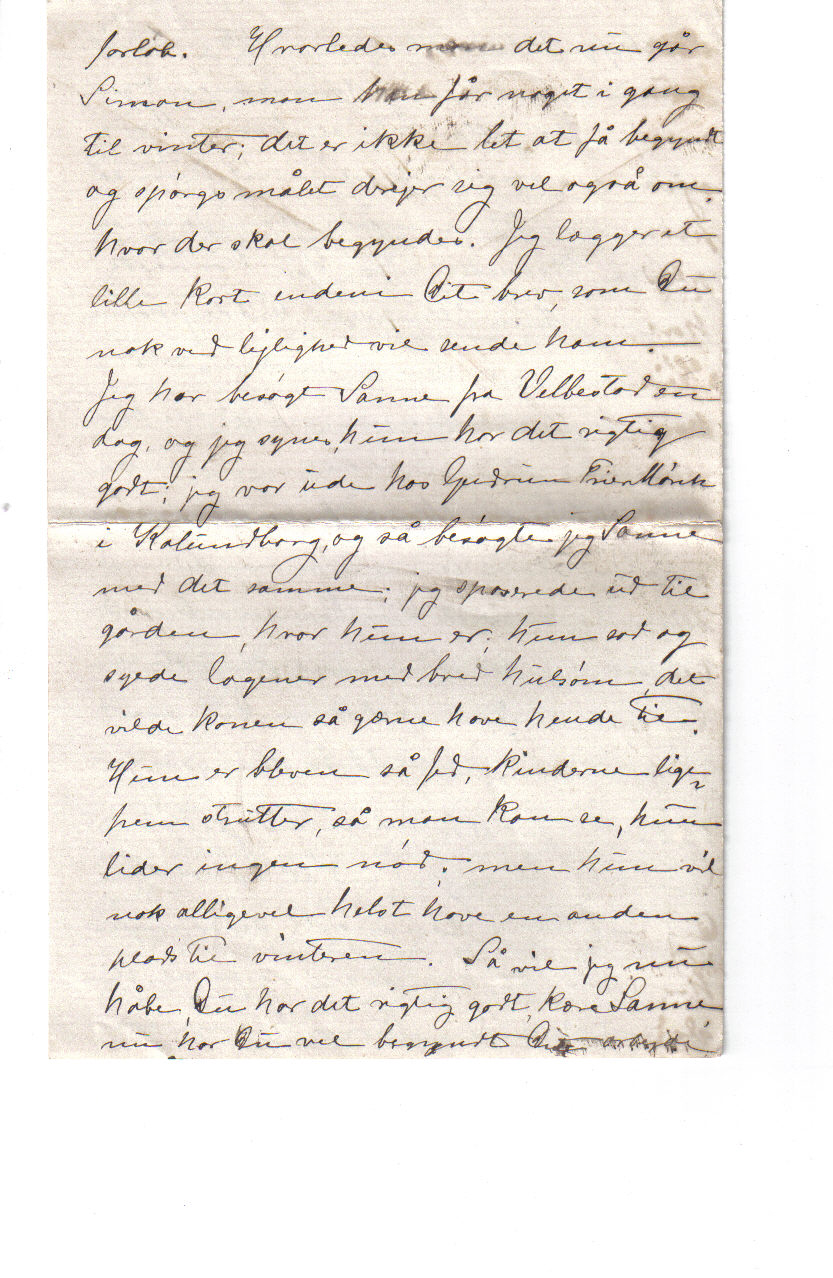 forløb. Hvorledes mon det nu går
Simon, mon han får noget i gang
til vinter; det er ikke let at få begyndt
og spørgsmålet drejer sig vel også om,
hvor der skal begyndes. Jeg lægger et
lille kort indeni Dit brev, som Du
nok ved lejlighed vil sende ham.
Jeg har besøgt Sanne fra Velbestad en
dag, og jeg synes, hun har det rigtig
godt; jeg var ude hos Gudrun Trier Mørch
i Kalundborg, og så besøgte jeg Sanne
med det samme; jeg spaserede ud til
gården, hvor hun er; hun sad og
syede lagener med bred hulsøm, det
vilde konen så gærne have hende til.
Hun er bleven så fed, kinderne lige-
frem strutter, så man kan se, hun
lider ingen nød; men hun vil
nok alligevel helst have en anden
plads til vinteren. Så vil jeg nu
håbe, Du har det rigtig godt, kære Sanne
nu har Du vel begyndt Dit arbejde